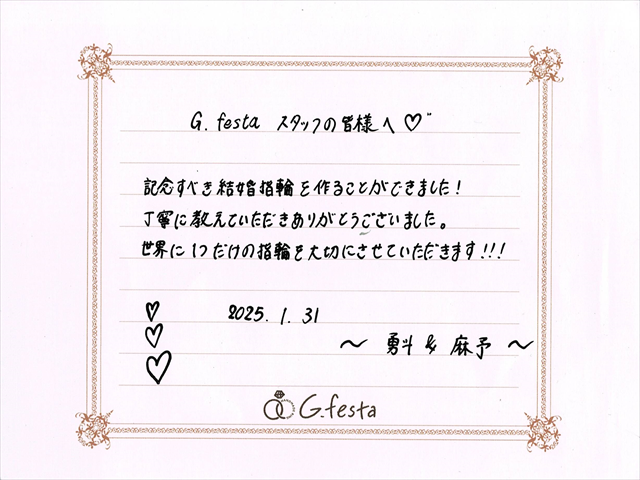 G. festa スタッフの皆様へ♡"
記念すべき結婚指輪を作ることができました!
丁寧に教えていただきありがとうございました。
世界に1つだけの指輪を大切にさせていただきます!!!
2025. 1. 31
〜 勇斗 & 麻予 〜
G.festa